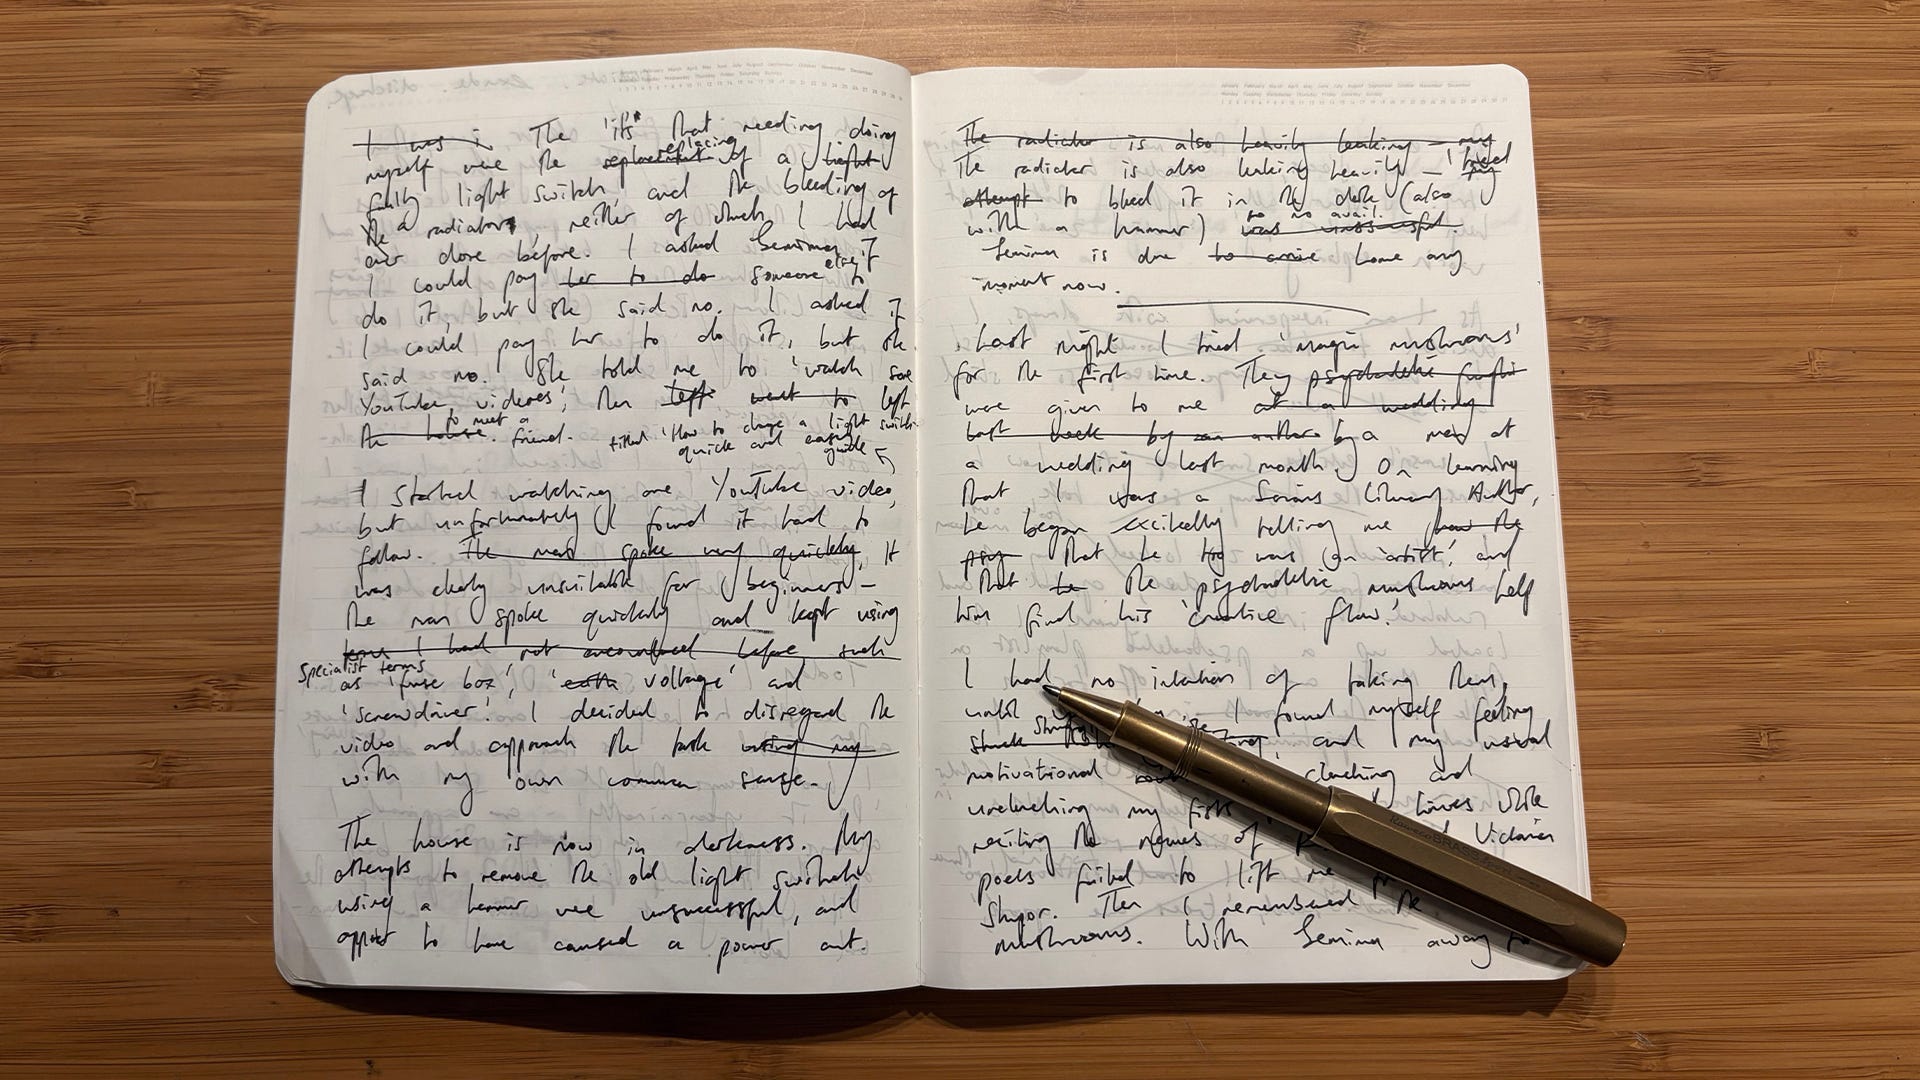 January February March April May June July August September October November December
Monday Tuesday Wednesday Thursday Friday Saturday Sunday
I was i The 'it's' that needing doing
replacing
myself were the replacement of a light
faulty light switch, and the bleeding of
the a radiator, neither of which I had
ever done before. I asked Semina if
else
I could pay her to do someone to
do it, but she said no. I asked if
I could pay her to do it, but she
said no. She told me to 'watch some
YouTube videos', then left went to left
to meet a
the house. friend. titled 'How to change a light switch
quick and easy guide
I started watching one YouTube video,
but unfortunately I found it hard to
follow. The man spoke very quickly, It
was clearly unsuitable for beginners –
the man spoke quickly and kept using
terms I had not encountered before such
specialist terms
as 'fuse box', 'earth voltage' and
'screwdriver'. I decided to disregard the
video and approach the task using my
with my own common sense.
The house is now in darkness. My
attempts to remove the old light switch
using a hammer were unsuccessful, and
appear to have caused a power cut.
The radiator is also heavily leaking – my
The radiator is also leaking heavily – I tried
attempt to bleed it in the dark (also
to no avail.
with a hammer) was unsuccessful.
Semina is due to arrive home any
moment now.
Last night I tried 'magic mushrooms'
for the first time. They psychadelic fungi
were given to me at a wedding
last week by an author by a man at
a wedding last month. On learning
that I was a Serious Literary Author,
he began excitedly telling me how the
psy that he was an 'artist', and
that he the psychadelic mushrooms help
him find his 'creative flow'.
I had no intention of taking them,
until I found myself feeling
stuck and my usual
motivational clenching and
unclenching my fists times while
reciting the names of Victorian
poets failed to lift me
stupor. Then I remembered the
mushrooms. With Semina away to
KawecoBRASS